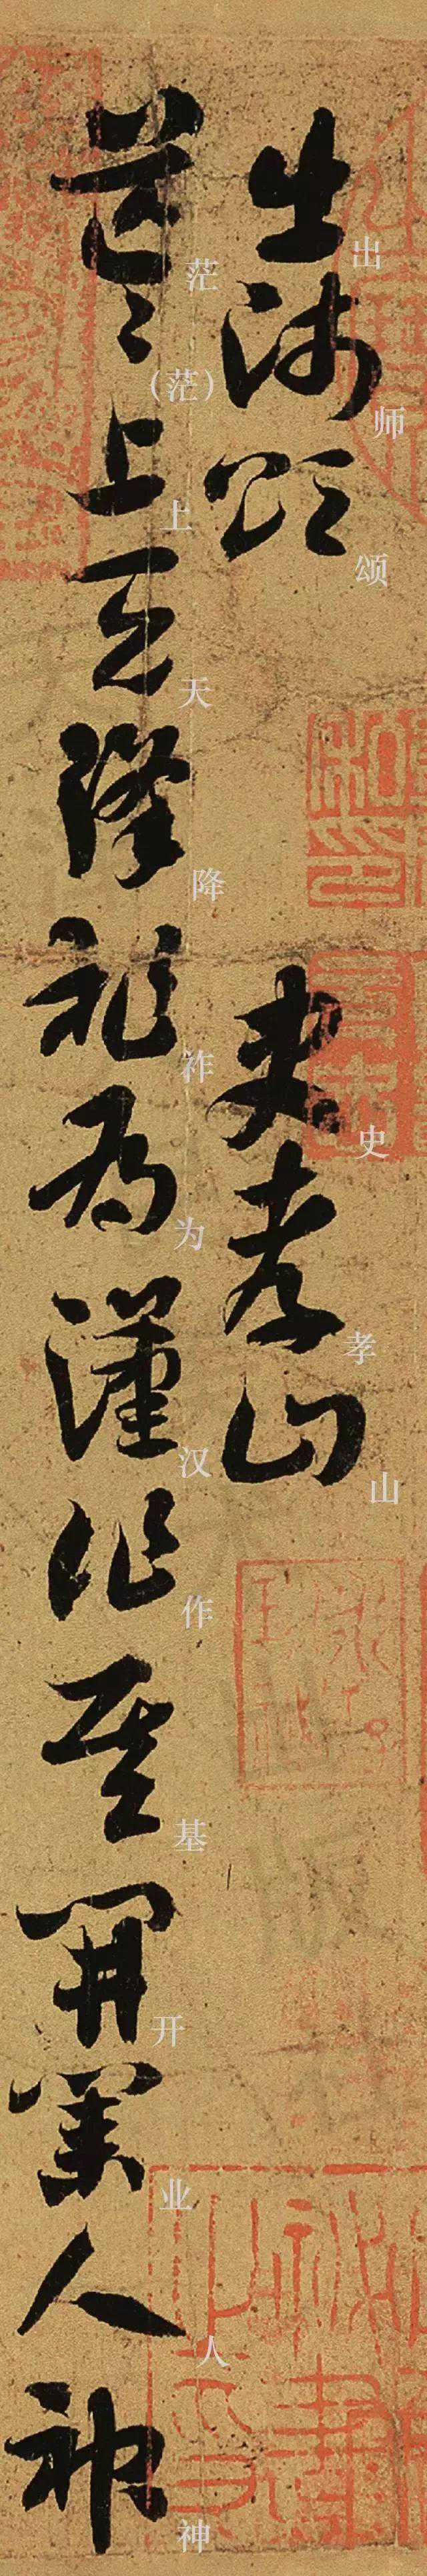 出师颂 史孝山
茫(茫)上天降祚为汉作基开业人神